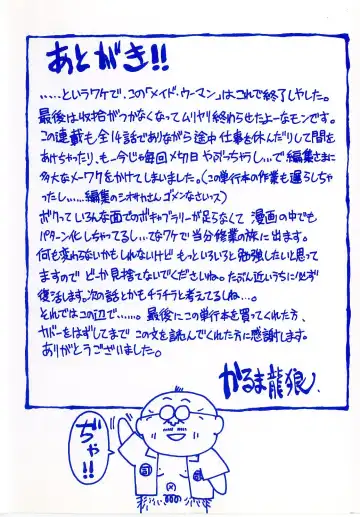 あとがき!!
……というワケで、この「メイド・ウーマン」はこれで終了しやした。
最後は収拾がつかなくなってムリヤリ終わらせたよーなモンです。
この連載も全14話でありながら途中仕事を休んだりして間を
あけちゃったり、も一今じゃ毎回〆切日やぶっちゃうし…で編集さまに
多大なメーワクをかけてしまいました。(この単行本の作業も遅らしちゃ
ったし……編集のシオサワさんゴメンなさいっス)
ボクっていろんな面でのボキャブラリーが足らなくて 漫画の中でも
パターン化しちゃってるし…てなワケで当分修業の旅に出ます。
何も変わらないかもしれないけど もっといろいろと勉強したいと思って
ますので どーか見捨てないでくださいね。たぶん近いうちに必ず
復活します。次の話とかもチラチラと考えてるしね…。
それではこの辺で……。最後にこの単行本を買ってくれた方、
カバーをはずしてまで この文を読んでくれた方に感謝します。
ありがとうございました。
かるま龍狼
ぢゃ!!